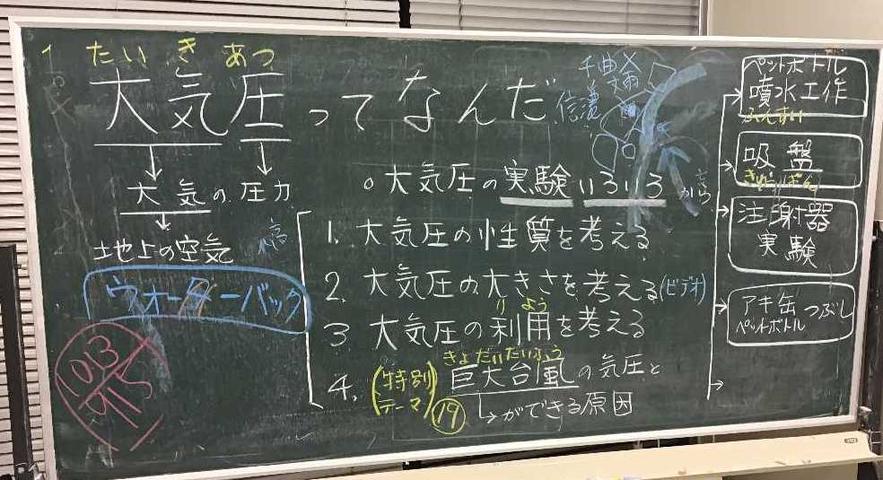 たい き あつ
大気圧ってなんだ
大気の圧力
土地上の空気
ウォーターバック
1013
915
千曲
信濃
○大気圧の実験いろいろ
から
1. 大気圧の性質を考える
2. 大気圧の大きさを考える(ビデオ)
りよう
3 大気圧の利用を考える
きょだいたいふう
4. (特別テーマ) 巨大台風の気圧と
⑲ ができる原因
ペットボトル
噴水工作
ふんすい
吸盤
きゅうばん
注射器
実験
アキ缶
ペットボトル つぶし